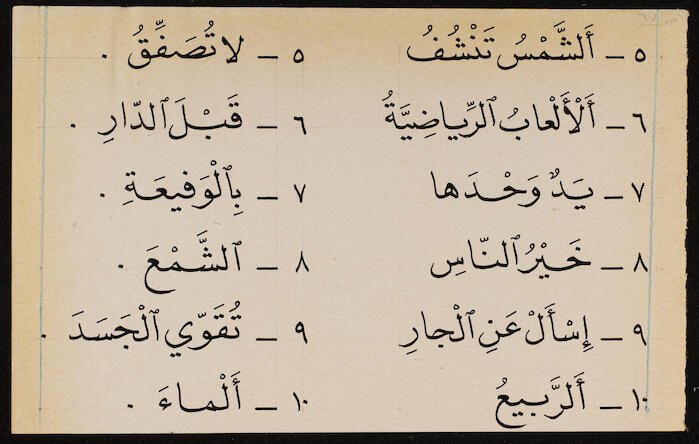 ٥ ـ أَلشَّمْسُ تَنْشُفُ ٥ ـ لا تُصَفِّقُ .
٦ ـ أَلْأَلْعابُ ٱلرِّياضِيَّةُ ٦ ـ قَبْلَ ٱلدّارِ .
٧ ـ يَدٌ وَحْدَها ٧ ـ بِٱلْوَقيعَةِ .
٨ ـ خَيْرُ ٱلنّاسِ ٨ ـ ٱلشَّمْعَ .
٩ ـ إِسْأَلْ عَنِ ٱلْجارِ ٩ ـ تُقَوّي ٱلْجَسَدَ .
١٠ ـ أَلرَّبيعُ ١٠ ـ أَلْماءَ .